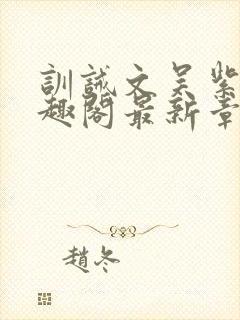 訓誡文吴紫
趣閣最新章
趙冬